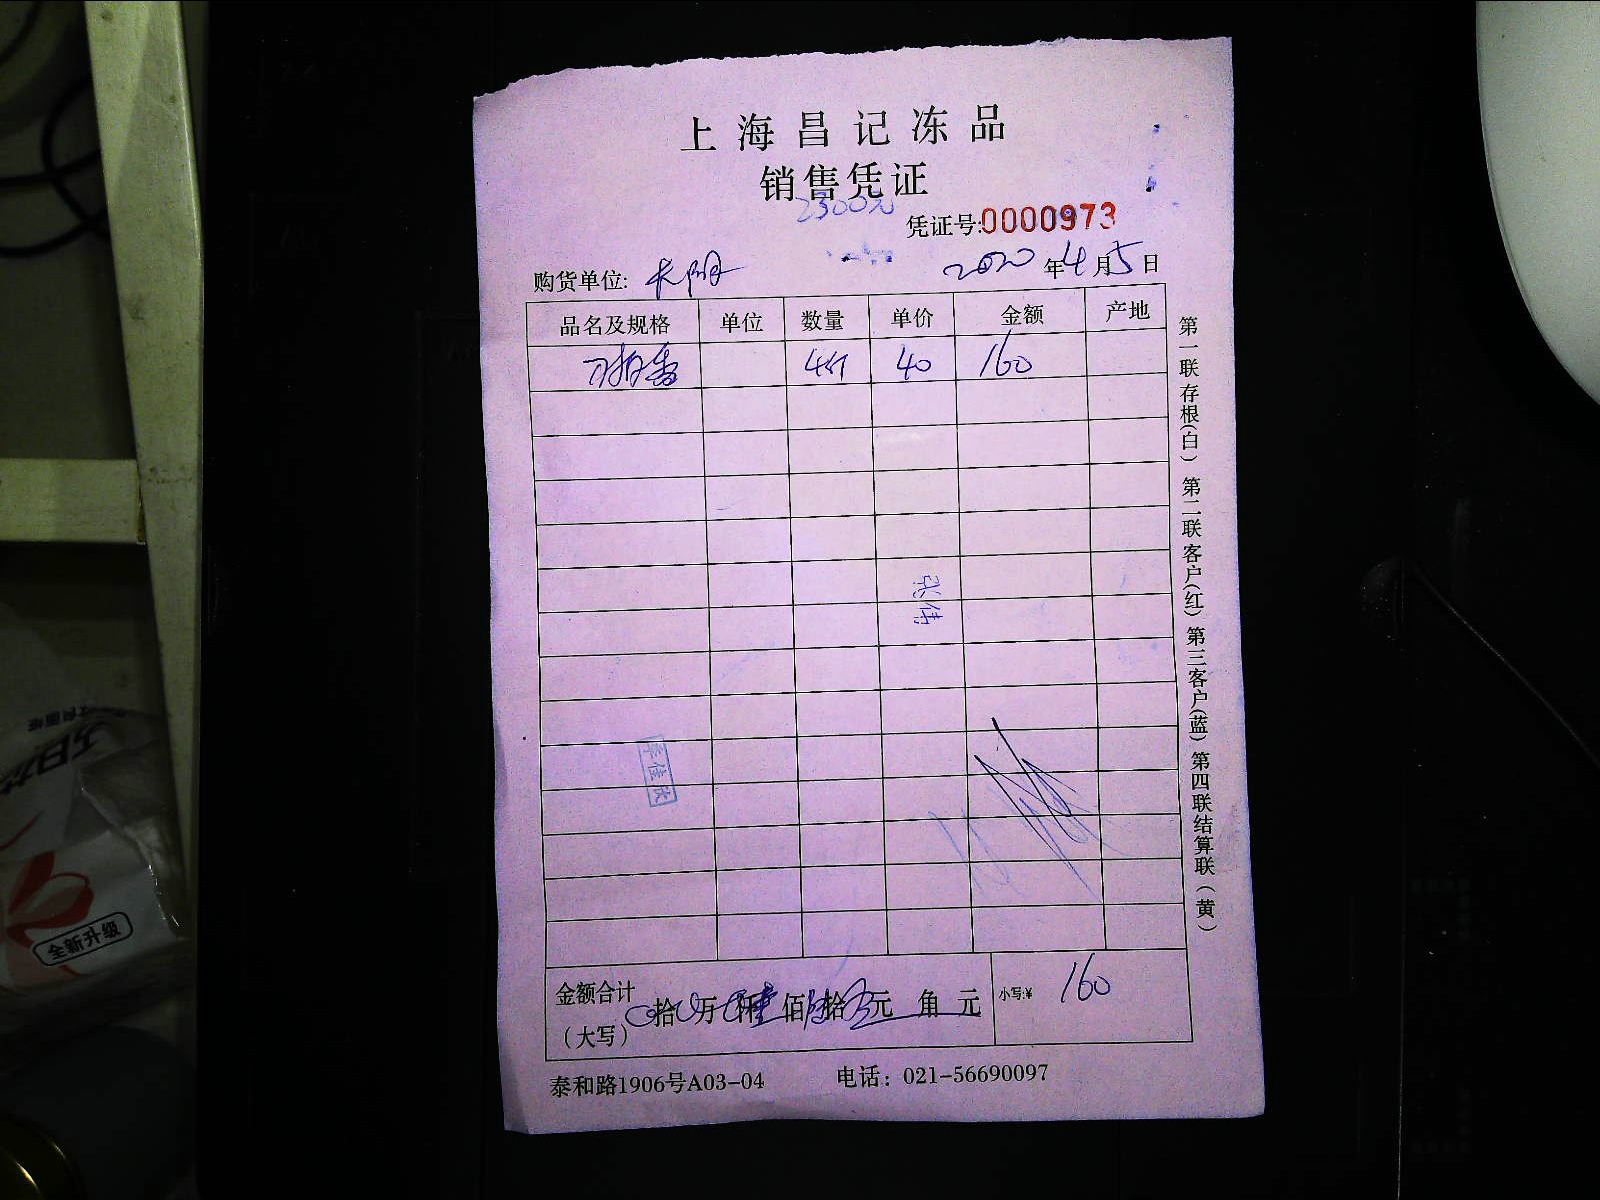 上海昌记冻品
销售凭证
2300元
凭证号:0000973
购货单位: 长阳 2020年4月5日
品名及规格 单位 数量 单价 金额 产地
4斤 40 160
张伟
李佳欣
金额合计
(大写) 拾 万 仟壹佰陆拾 元 角 元 小写:¥ 160
泰和路1906号A03-04 电话: 021-56690097
第一联存根(白) 第二联客户(红) 第三客户(蓝) 第四联结算联(黄)
全新升级